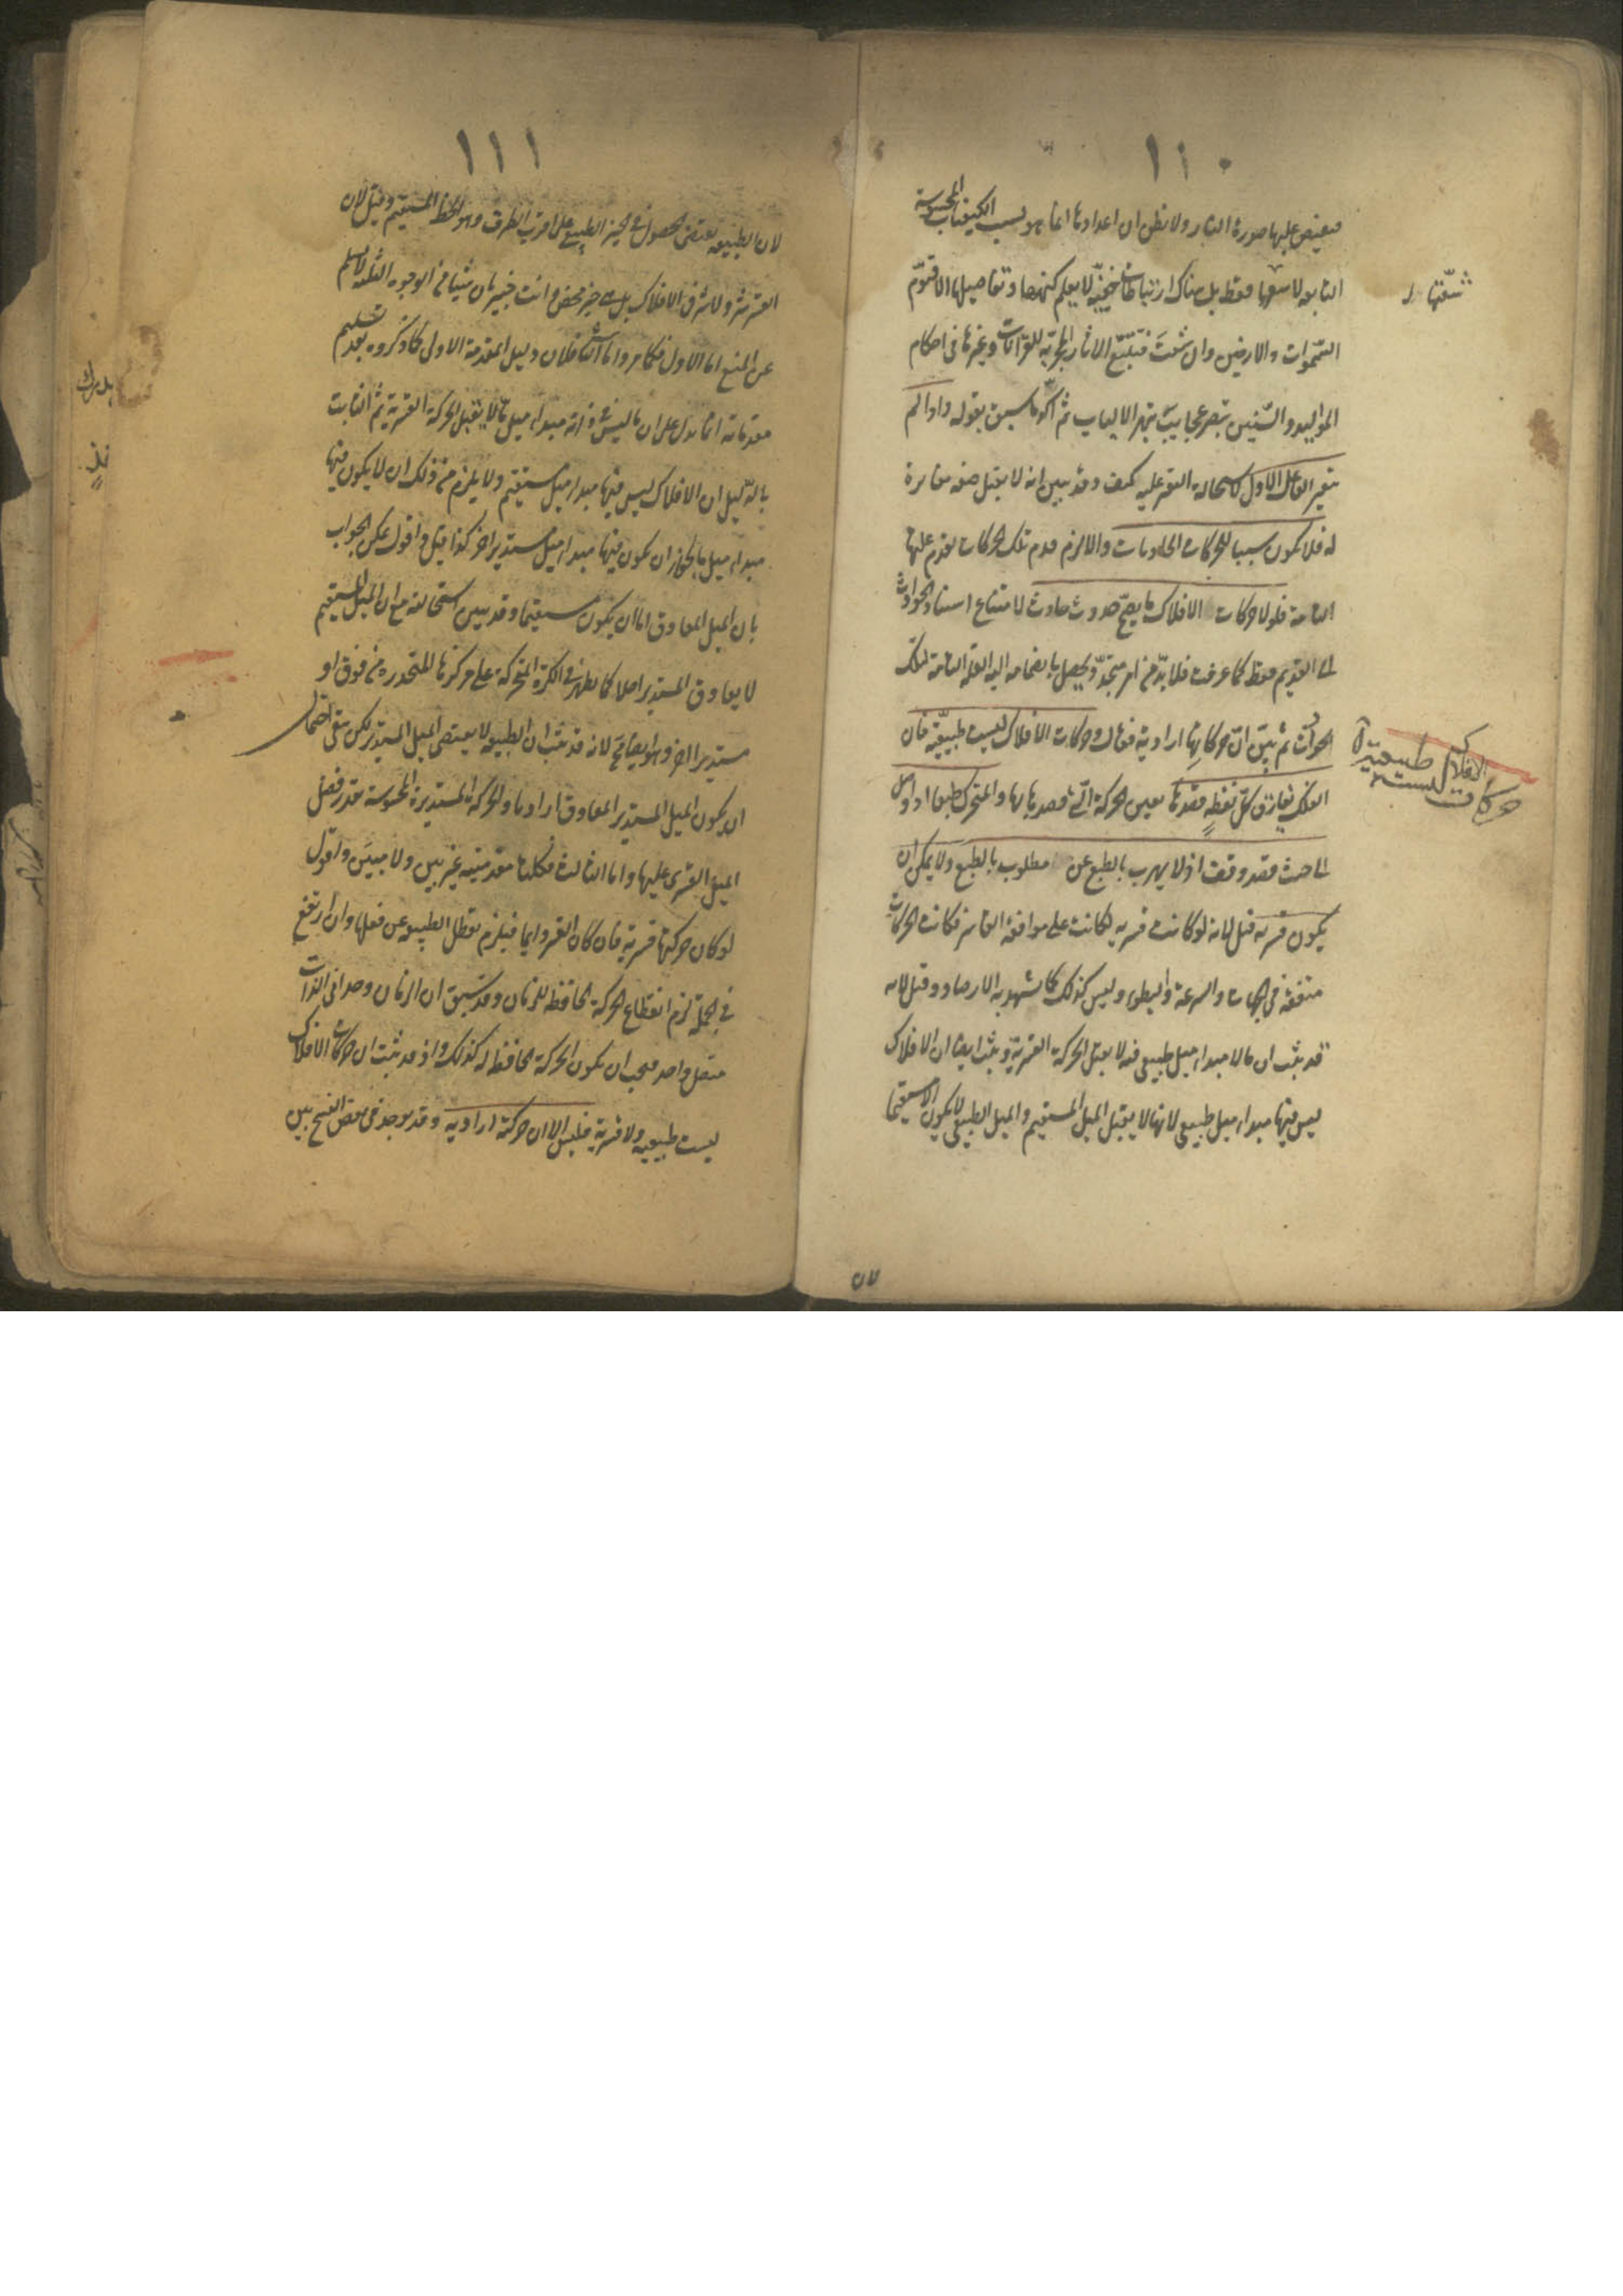 ١١٠
فيفيض عليها صورة النار ولا تظن ان اعدادها انما هو بسبب الكيفيات المحسوسة
التابعة لاشعتها فقط بل هناك ارتباطات خفية لا يعلم كنهها وتفاصيلها الا قيّوم
السموات والارضين وان شئت فتتبّع الاثار المجربة للقرانات وغيرها في احكام
المواليد والسنين تبصر عجايب تبهر الالباب ثم اكد ما سبق بقوله واذا لم
يتغير الفاعل الاول لاستحالة التغير عليه كيف وقد تبين انه لا يقبل صفة مغايرة
له فلا يكون سببا للحركات الحادثات والا لزم قدم تلك الحركات لقدم علتها
التامة فلولا حركات الافلاك ما يصح حدوث حادث لامتناع استناد الحوادث
الى القديم فقط كما عرفت فلا بدّ من امر متجدّد يحصل بانضمامه اليه العلة التامة لتلك
الحوادث ثم بيّن انّ حركاتها ارادية فقال وحركات الافلاك ليست طبيعية فان
الفلك يفارق كل نقطة قصدها بعين الحركة التي قصدها بها والمتحرك طبعا اذا وصل
الى حيث قصد وقف اذ لا يهرب بالطبع عن مطلوب بالطبع ولا يمكن ان
يكون قسرية قيل لانه لو كانت قسرية لكانت على موافقة القاسر فكانت الحركات
متفقة في الجهات والسرعة والبطء وليس كذلك كما شهد به الارصاد وقيل لانه
قد ثبت ان ما لا مبدا ميل طبيعي فيه لا يقبل الحركة القسرية وثبت ايضا ان الافلاك
ليس فيها مبدا ميل طبيعي لانها لا يقبل الميل المستقيم والميل الطبيعي لا يكون الا مستقيما
حركات الافلاك ليست طبيعية
١١١
لان الطبيعة تقتضي الحصول في الحيز الطبيعي على اقرب الطرق وهو الخط المستقيم وقيل لان
القسر شر ولا شر في الافلاك بل هي خير محض وانت خبير بان شيئا من الوجوه الثلثة لا يسلم
عن المنع اما الاول فكما مر واما الثاني فلان دليل المقدمة الاولى كما ذكروه بعد تسليم
مقدماته انما يدل على ان ما ليس في ذاته مبدا ميل ما لا يقبل الحركة القسرية ثم الثابت
بالدليل ان الافلاك ليس فيها مبدا ميل مستقيم ولا يلزم من ذلك ان لا يكون فيها
مبدا ميل ما لجواز ان يكون فيها مبدا ميل مستدير اخر كذا قيل واقول يمكن الجواب
بان الميل المعاوق اما ان يكون مستقيما وقد تبين استحالته مع ان الميل المستقيم
لا يعاوق المستدير اصلا كما يظهر في الكرة المتحركة على مركزها المنحدرة من فوق او
مستديرا اخر وهو ايضا مح لانه قد ثبت ان الطبيعة لا يقتضي الميل المستدير لكن بقي احتمال
ان يكون الميل المستدير المعاوق اراديا والحركة المستديرة المحسوسة بقدر فضل
الميل القسري عليها واما الثالث فكلتا مقدمتيه غير بين ولا مبيّن واقول
لو كان حركتها قسرية فان كان القسر دايما فيلزم تعطل الطبيعة عن فعلها وان ارتفع
في الجملة لزم انقطاع الحركة الحافظة للزمان وقد سبق ان الزمان وحداني الذات
متصل واحد فيجب ان يكون الحركة الحافظة له كذلك واذ قد ثبت ان حركات الافلاك
ليست طبيعية ولا قسرية فليس الا ان حركته ارادية وقد يوجد في بعض النسخ بين